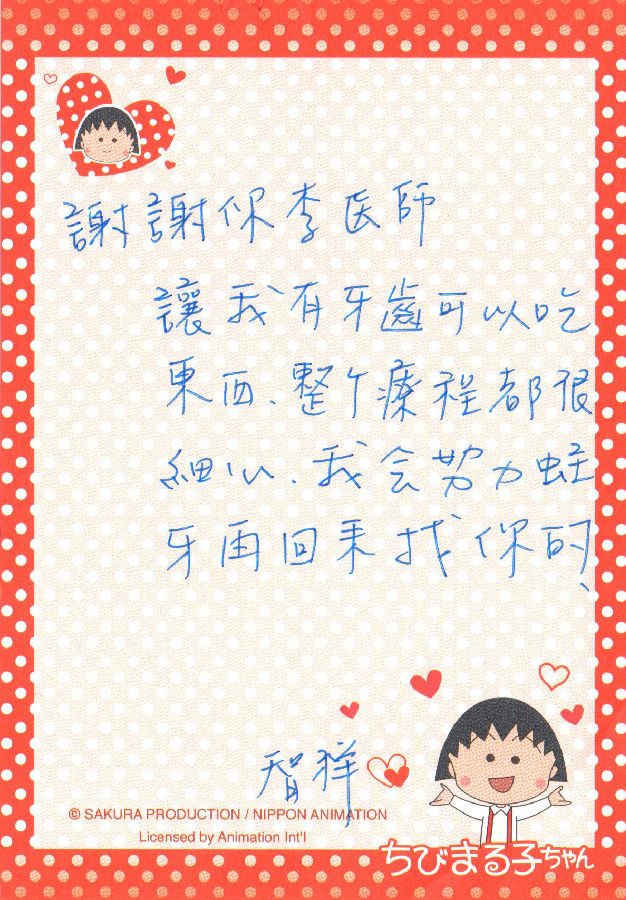 謝謝你李医師
讓我有牙齒可以吃
東西、整个療程都很
細心、我会努力蛀
牙再回来找你的、
智祥
© SAKURA PRODUCTION / NIPPON ANIMATION
Licensed by Animation Int'l
ちびまる子ちゃん